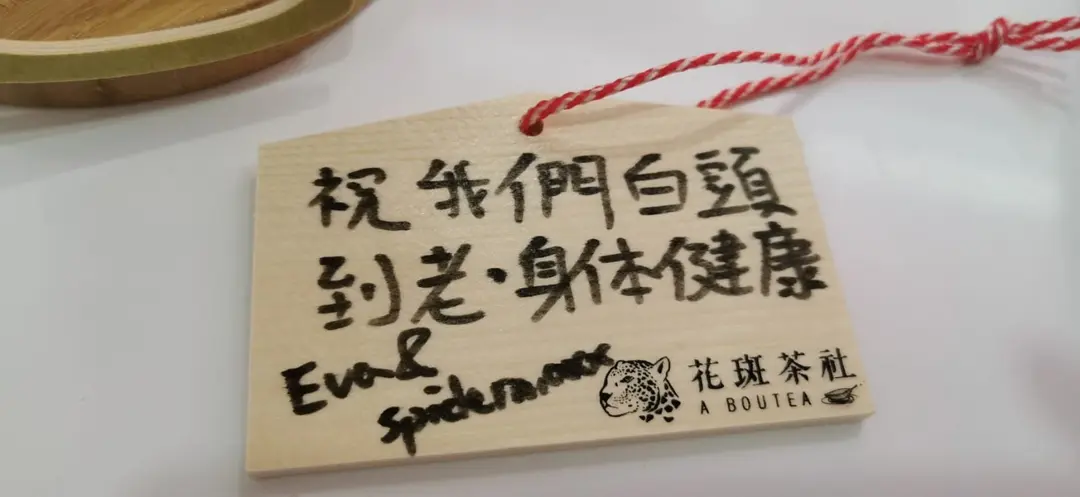 祝我們白頭
到老·身体健康
Eva &
spiderman
花斑茶社
A BOUTEA